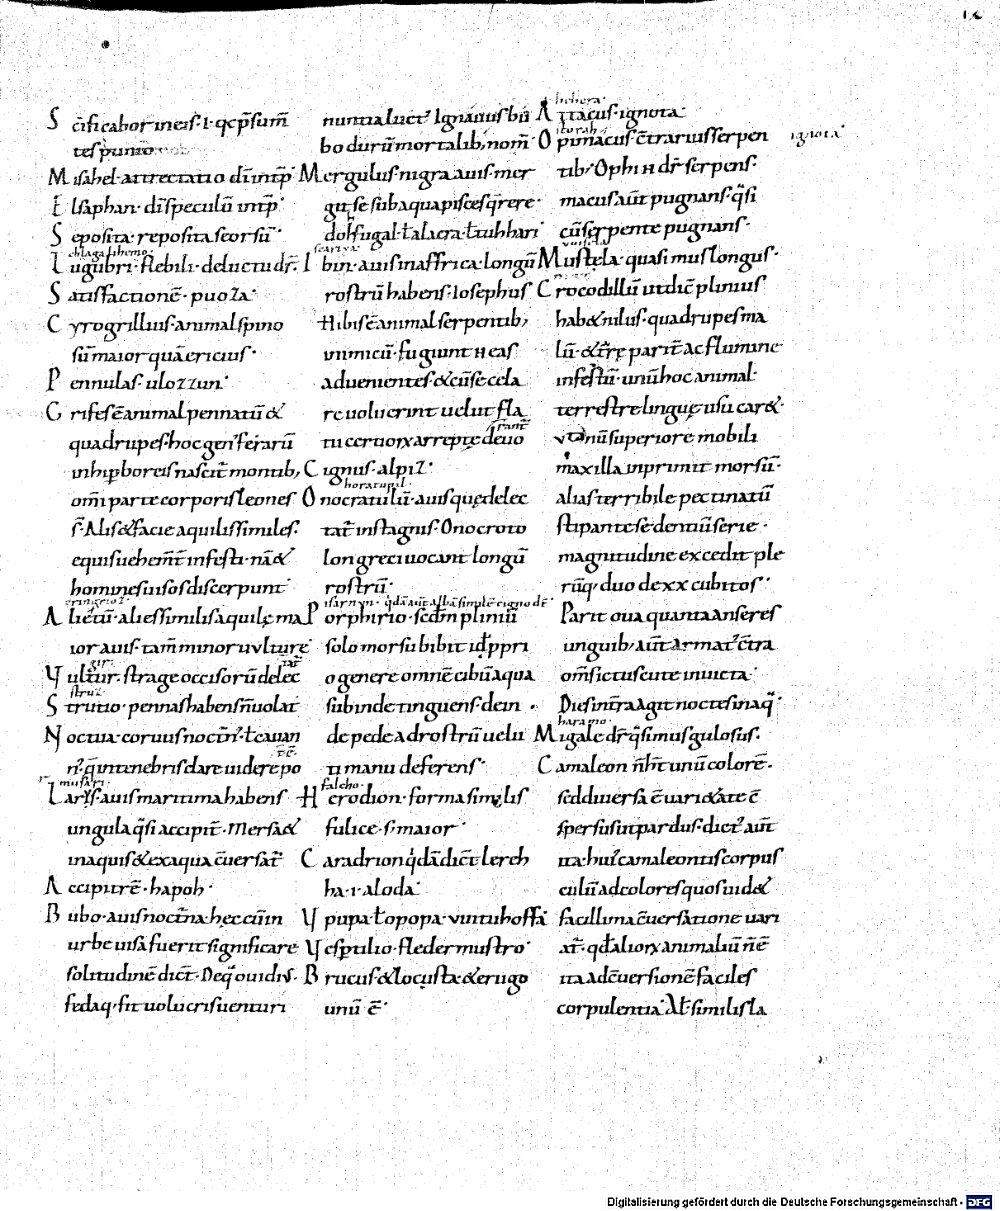 S cificabor ineis· i· qcpsum̄
tes punio
M isahel· attrectatio di intp̄·
E lsaphan· di speculū intp̄·
S eposita· reposita seorsū·
chlagalihemo·
L ugubri· flebili· de luctu dr̄·
S atisfactione· puoza·
C yrogrillius· animal spino
sū maior quā ericius·
P ennulas· ulozzun·
G rifes ē animal pennatū &
quadrupes· hoc gen' ferarū
in hiperboreis nascit̄ montib;
omi parte corporis leones
s̄· Alis & facie aquilis similes·
equis uehem̄t infesti· nā &
homines uisos discerpunt·
eringrioz
A lietū· ali es similis aquilę ma
ior auis· tam̄ minor uulture·
gir·
V ultur· strage occisorū delec
tat̄
struz
S trutio· pennas habens n̄ uolat
N octua· coruus noctin̄· t̄ cauan
n'· q̄ in tenebris clare uidere po
t̄ē·
musari·
L arus· auis maritima habens
ungula q̄si accipit̄· Mersa &
in aquis & ex aqua c̄uersat̄·
A ccipitrē· hapoh·
B ubo· auis noctina· hęc cū in
urbe uisa fuerit significare
solitudinē dict̄· De q̄ ouidi'·
fedaq· fit uolucris uenturi
nuntia luct'· Ignauus bū
bo durū mortalib; nom̄·
M ergulus· nigra auis· mer
git se sub aqua pisces q̄rere·
dohfugal· t̄ alacra· t̄ tuhhari·
scarua·
I bin· auis in affrica· longū
rostrū habens· Iosephus
Hibis ē animal serpentib;
inimicū· fugiunt H eas
aduenientes & cū se cela
re uoluerint uelut fla
tu ceruorx arreptę deuo
rant̄
C ignus· alpiz·
horatupil·
O nocratulū· auis quę delec
tat̄ in stagnis· Onocroto
lon greci uocant longū
rostrū·
isarnyn· q̄dā aut̄ albā simple cigno dr̄·
P orphirio· scdm plinium
solo morsu bibit id p̄pri
o genere omnē cibū aqua
subinde tinguens· dein·
de pede ad rostrū uelu
ti manu deferens·
falcho·
H erodion· forma similis
fulice· s· maior·
C aradrion q̄dā dict̄ lerch
ha· i· aloda·
V pupa· t̄ opopa· vuituhoffa
V esptilio· fledermustro·
B rucus· & locusta & erugo
unū ē·
hehera·
A ttacus· ignota·
itorah
O pimacus· c̄trarius serpen
ignota·
tib'· Ophin dr̄ serpens·
macus aut̄ pugnans· q̄si
cū serpente pugnans·
vuisela
M ustela· quasi mus longus·
C rocodillū ut dic̄ plinius
hab& nilus· quadrupes ma
lū· & tr̄ę parit̄ ac flumine
infestū· unū hoc animal·
terrestre linguę usu car&·
vnū superiore mobili
maxilla inprimit morsū·
alias terribile pectinatū
stipante se dentiū serie·
magnitudine excedit ple
rūq; duo de xx cubitos·
Parit oua quanta anseres
unguib; aut̄ armat' c̄tra
om̄s ictus cute inuicta·
Dies in tr̄a agit noctes in aq̄·
haramo·
M igale dr̄ q̄si mus gulosus·
C amaleon n̄ ht̄ unū colorē·
sed diuersa ē uari&ate c̄
spersus ut pardus· dict' aut̄
ita· hui' camaleontis corpus
culū ad colores quos uid&
facillima c̄uersatione uari
at̄· qd aliorx animaliū n̄ ē
ita ad c̄uersionē faciles
corpulentia· At̄ similis la
Digitalisierung gefördert durch die Deutsche Forschungsgemeinschaft - DFG